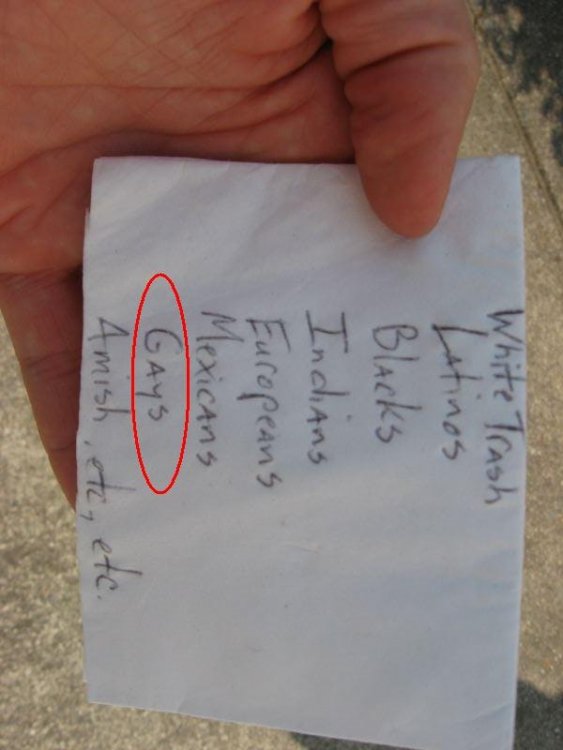 White Trash
Latinos
Blacks
Indians
Europeans
Mexicans
Gays
Amish, etc, etc.